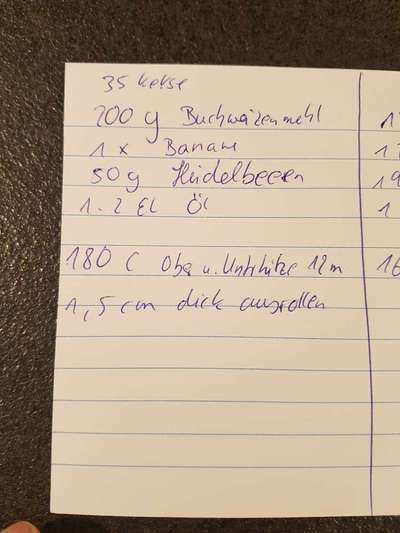 35 Kekse
200 g Buchweizenmehl
1 x Banane
50g Heidelbeeren
1-2 EL Öl
180 C Ober u. Unterhitze 12m
1,5 cm dick ausrollen